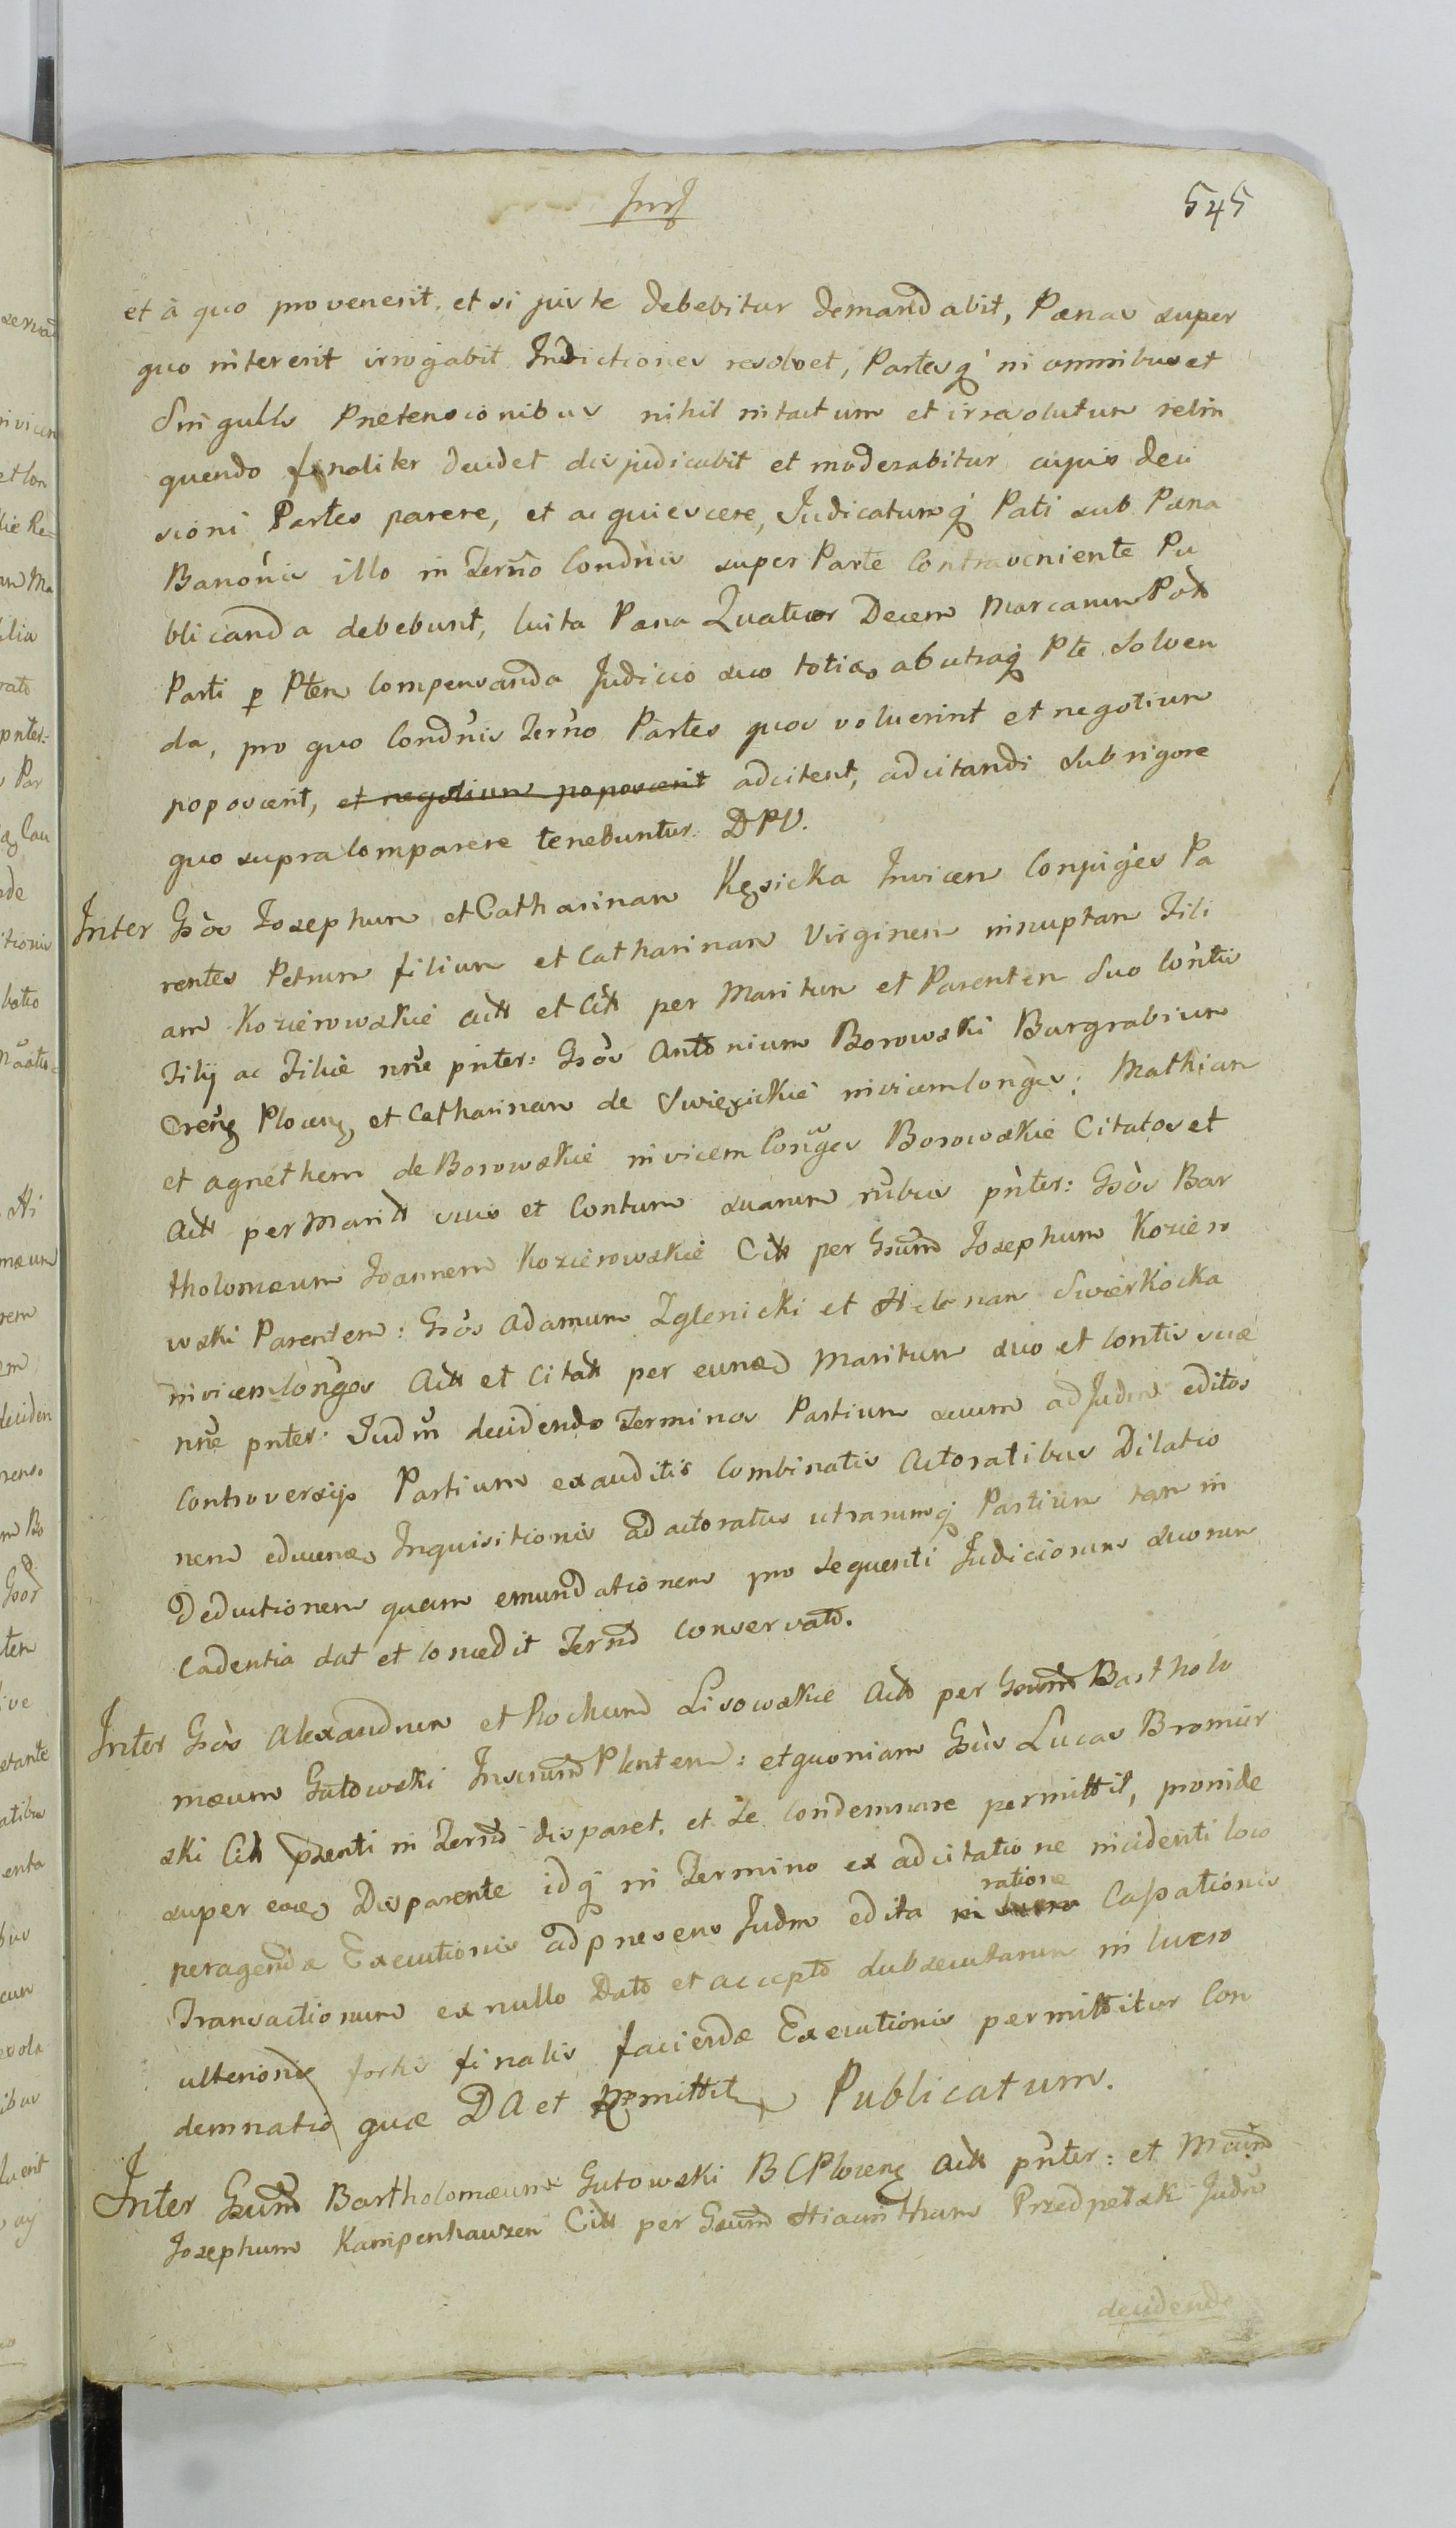 545
et à quo provenerit, et si juste debebitur demandabit, Pænas super
quo intererit irrogabit Indictiones resolvet, Partesq in omnibus et
Singulis Prætensionibus nihil intactum et irresolutum relin
quendo finaliter decidet disjudicabit et moderabitur cujus deci
sioni Partes parere, et acquiescere, Judicatumq Pati sub Pæna
Banonis illo in Terno Condnis super Parte Contraveniente Pu
blicanda debebunt, luita Pæna Quatuor Decem Marcarum Pol
Parti p Ptem compensanda Judicio suo toties ab utraq Pte Solven
da, pro quo Condnis Terno Partes quos voluerint et negotium
poposcerit, et negotium poposcerit adcitent, adcitandi Sub rigore
quo supra Comparere tenebuntur. DPU.
Inter Gsos Josephum et Catharinam Kęsicka Invicem Conjuges Pa
rentes Petrum filium et Catharinam Virginem innuptam Fili
am Kozierowskie Actt et Citt per Maritum et Parentem Suo Contis
Filij ac Filiæ nne pnter: Gsos Antonium Borowski Burgrabium
Crens Plocens, et Catharinam de Swięzickie invicem Conges: Mathiam
et Agnethem de Borowskie invicem Conges Borowskie Citatos et
Actt per Maritt suus et Contum suarum nnbus pnter: Gsos Bar
tholomæum Joannem Kozierowskie Citt per Gsum Josephum Koziero
wski Parentem: Gsos Adamum Zglenicki et Helenam Swierkocka
invicem Conges Actt et Citatt per eundem Maritum suo et Contis suæ
nne pnter: Judm decidendo Terminos Partium suum ad Judm editos
Controversijs Partium exauditis combinatis Actoratibus Dilatio
nem educendæ Inquisitionis ad actoratus utrarumq Partium tam in
Deductionem quam emundationem pro Sequenti Judiciorum suorum
Cadentia dat et Concedit Terno conservato.
Inter Gsos Alexandrum et Rochum Lisowskie Actt per Gsum Bartholo
mæum Gutowski Juscrum Plentem: et quoniam Gsus Lucas Bromir
ski Citt psenti in Terno disparet, et Se Condemnare permittit, proinde
super eoq Disparente idq in Termino ex adcitatione incidenti loco
peragendæ Executionis ad præsens Judm edita ratione Cassationis
Transactionum ex nullo Dato et accepto subsecutarum in lucro
ulterioris fortis finalis faciendæ Executionis permittitur Con
demnatio quæ DA et Prmittit Publicatum.
Inter Gsum Bartholomæum Gutowski BCPlocens Actt pnter: et Mcum
Josephum Kampenhauzen Citt per Gsum Hiacinthum Przedpełsk Judm
decidendo